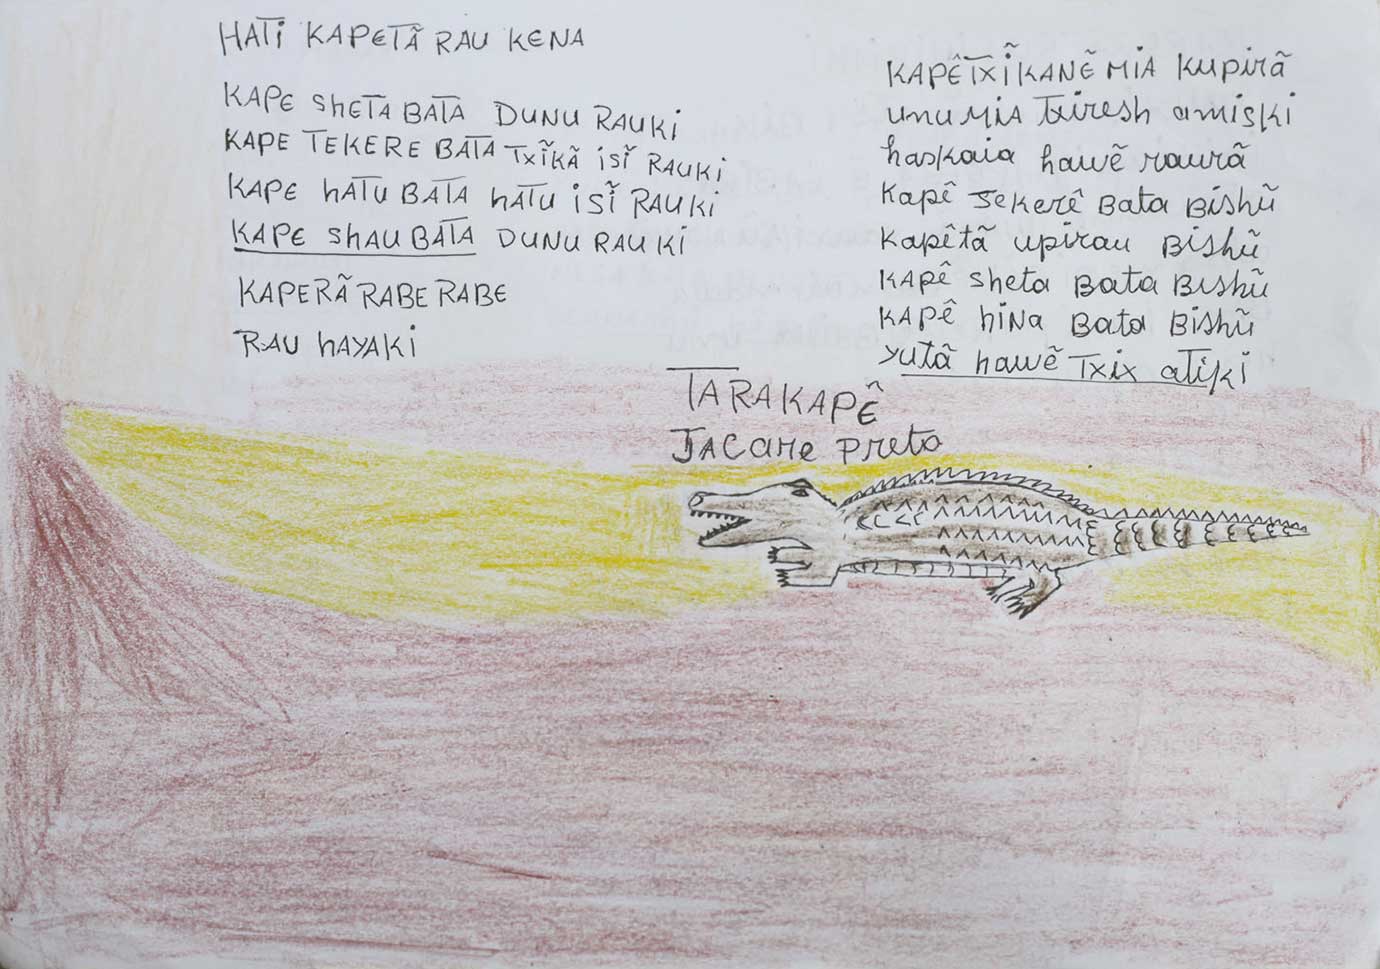 HATi KAPETÃ RAU KENA
KAPE SHETA BATA DUNU RAUKi
KAPE TEKERE BATA TXĨKÃ iSĨ RAUKi
KAPE hATU BATA hATU iSĨ RAUKi
KAPE SHAU BATA DUNU RAUKi
KAPERÃ RABE RABE
RAU hAYAKi
KAPÊTXĨKANẼ MiA Kupirã
unuMiA Txiresh amiski
haskaia hawẽ raurã
Kapê Tekerê Bata Bishũ
Kapêtã upirau Bishũ
KAPÊ sheta Bata Bishũ
KAPÊ hiNa Bata Bishũ
yutã hawẽ Txix atiki
TARAKAPÊ
JACAre preto